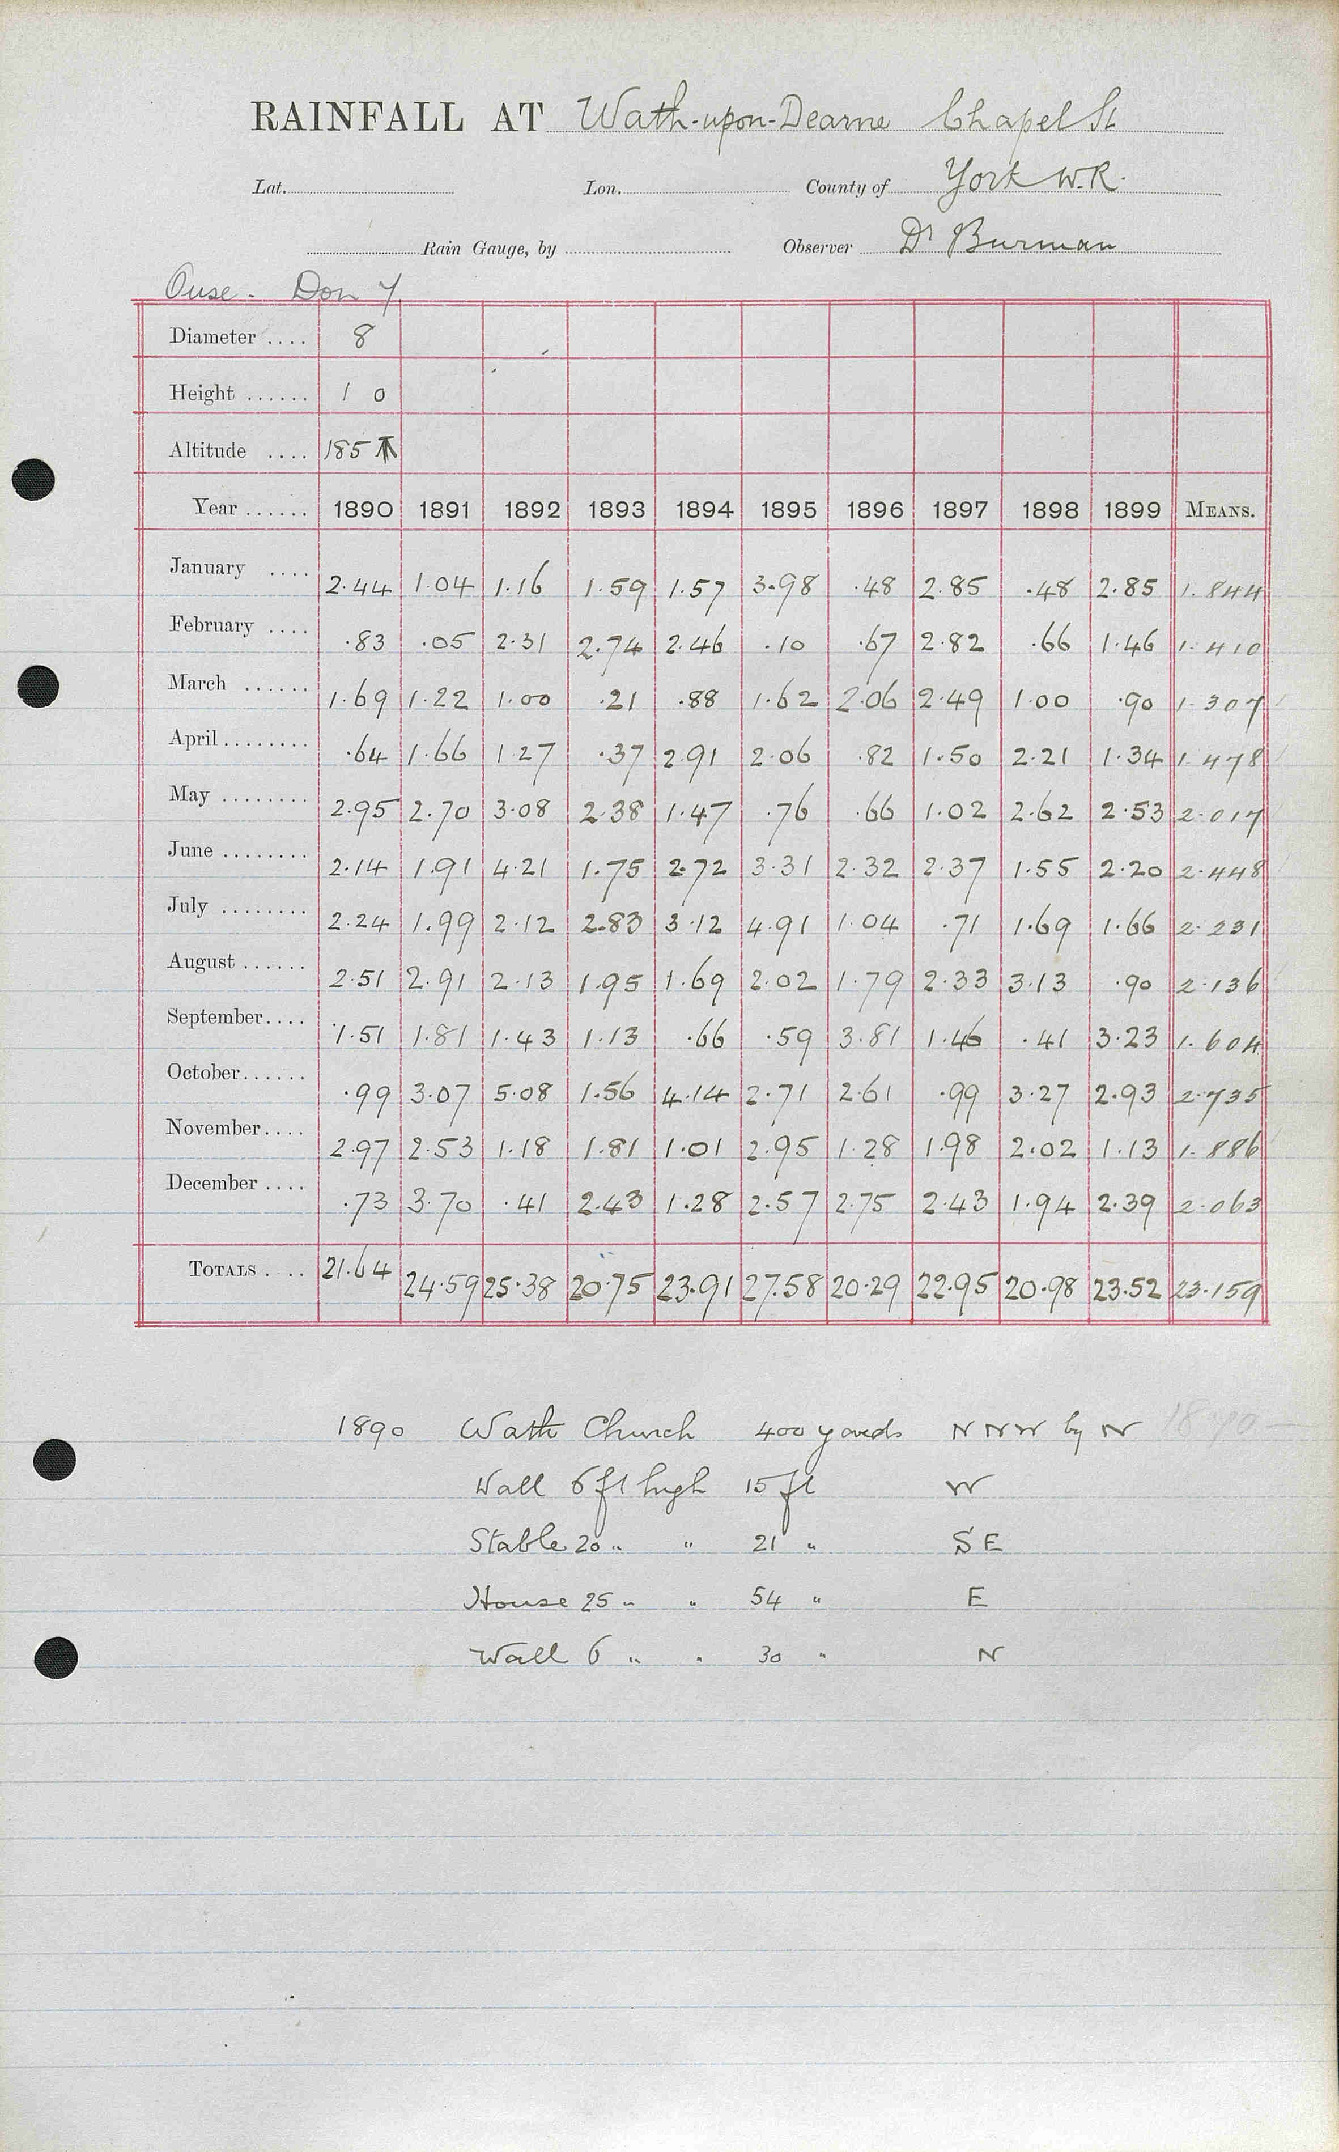 RAINFALL AT Wath-upon-Dearne Chapel St
Lat. Lon. County of York W.R.
Rain Gauge, by Observer Dr Burman
Ouse. Don 7.
Diameter .... 8
Height ...... 1 0
Altitude .... 185
Year ...... 1890 1891 1892 1893 1894 1895 1896 1897 1898 1899 MEANS.
January .... 2.44 1.04 1.16 1.59 1.57 3.98 .48 2.85 .48 2.85 1.844
February .... .83 .05 2.31 2.74 2.46 .10 .67 2.82 .66 1.46 1.410
March ...... 1.69 1.22 1.00 .21 .88 1.62 2.06 2.49 1.00 .90 1.307
April ........ .64 1.66 1.27 .37 2.91 2.06 .82 1.50 2.21 1.34 1.478
May ........ 2.95 2.70 3.08 2.38 1.47 .76 .66 1.02 2.62 2.53 2.017
June ........ 2.14 1.91 4.21 1.75 2.72 3.31 2.32 2.37 1.55 2.20 2.448
July ........ 2.24 1.99 2.12 2.83 3.12 4.91 1.04 .71 1.69 1.66 2.231
August ...... 2.51 2.91 2.13 1.95 1.69 2.02 1.79 2.33 3.13 .90 2.136
September.... 1.51 1.81 1.43 1.13 .66 .59 3.81 1.46 .41 3.23 1.604
October...... .99 3.07 5.08 1.56 4.14 2.71 2.61 .99 3.27 2.93 2.735
November.... 2.97 2.53 1.18 1.81 1.01 2.95 1.28 1.98 2.02 1.13 1.886
December .... .73 3.70 .41 2.43 1.28 2.57 2.75 2.43 1.94 2.39 2.063
TOTALS .... 21.64 24.59 25.38 20.75 23.91 27.58 20.29 22.95 20.98 23.52 23.159
1890 Wath Church 400 yards N N W by N 1890
Wall 6 ft high 15 ft W
Stable 20 " " 21 " S E
House 25 " " 54 " E
Wall 6 " " 30 " N